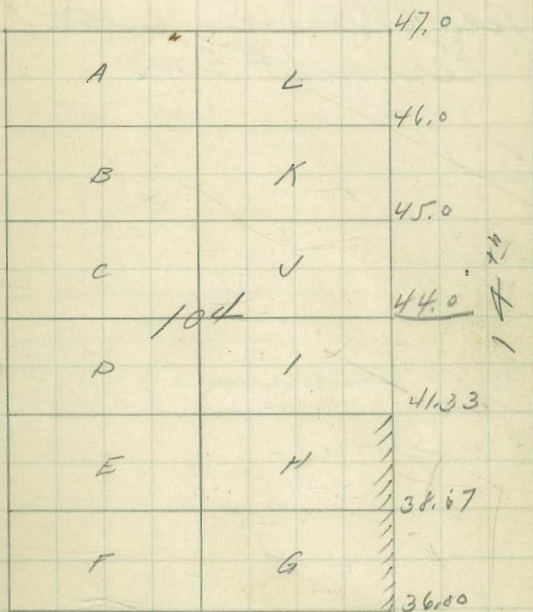 47.0
A L
46.0
B K
45.0
C J
104 44.0
14th
D I
41.33
E H
38.67
F G
36.00